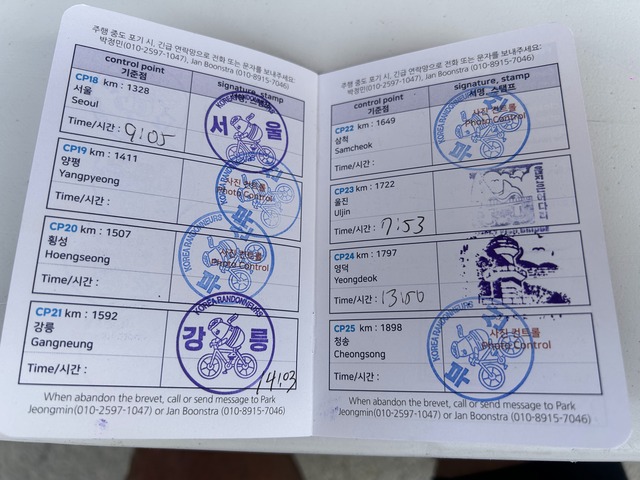 주행 중도 포기 시, 긴급 연락망으로 전화 또는 문자를 보내주세요:
박정민(010-2597-1047), Jan Boonstra (010-8915-7046)
control point
기준점
signature, stamp
서명, 스탬프
CP18 km : 1328
서울
Seoul
Time/시간 : 9:05
KOREA RANDONNEURS
서 울
CP19 km : 1411
양평
Yangpyeong
Time/시간 :
사진 컨트롤
Photo Control
부산
CP20 km : 1507
횡성
Hoengseong
Time/시간 :
KOREA RANDONNEURS
사진 컨트롤
Photo Control
부산
CP21 km : 1592
강릉
Gangneung
Time/시간 :
KOREA RANDONNEURS
강 릉
14:03
When abandon the brevet, call or send message to Park
Jeongmin(010-2597-1047) or Jan Boonstra (010-8915-7046)
주행 중도 포기 시, 긴급 연락망으로 전화 또는 문자를 보내주세요:
박정민(010-2597-1047), Jan Boonstra (010-8915-7046)
control point
기준점
signature, stamp
서명, 스탬프
CP22 km : 1649
삼척
Samcheok
Time/시간 :
KOREA RANDONNEURS
사진 컨트롤
Photo Control
부산
CP23 km : 1722
울진
Uljin
Time/시간 : 7:53
CP24 km : 1797
영덕
Yeongdeok
Time/시간 : 13:00
CP25 km : 1898
청송
Cheongsong
Time/시간 :
KOREA RANDONNEURS
사진 컨트롤
Photo Control
부산
When abandon the brevet, call or send message to Park
Jeongmin(010-2597-1047) or Jan Boonstra (010-8915-7046)